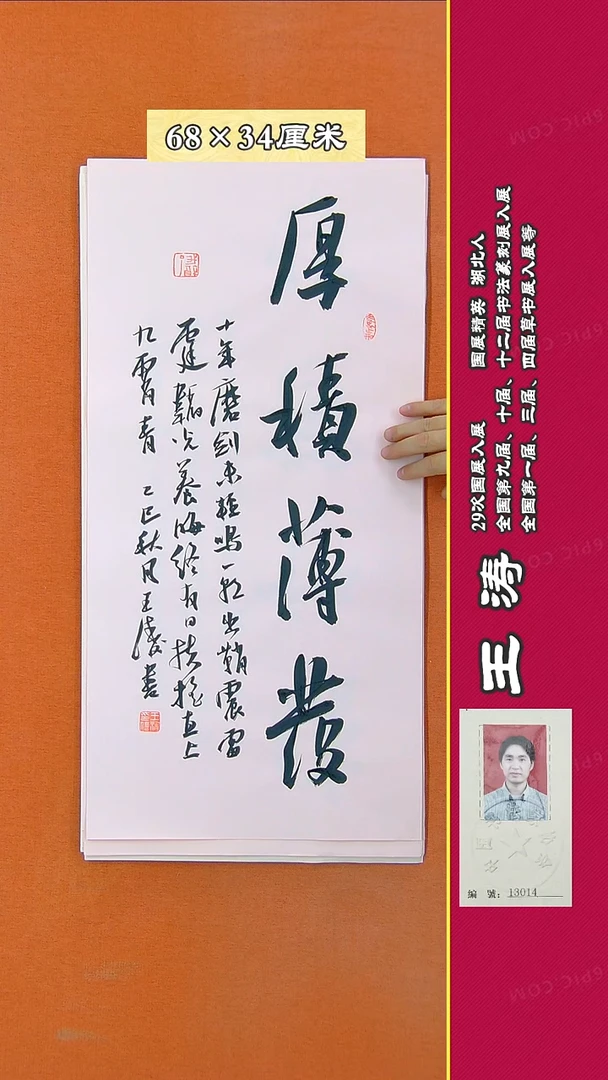 68×34厘米
厚積薄發
十年磨剑未轻鸣一朝出鞘震雷
霆韜光養晦终有日扶摇直上
九霄青 乙巳秋月王涛書
王涛
29次国展入展 国展精英 湖北人
全国第九届、十届、十二届书法篆刻展入展
全国第一届、三届、四届草书展入展等
編 號：13014